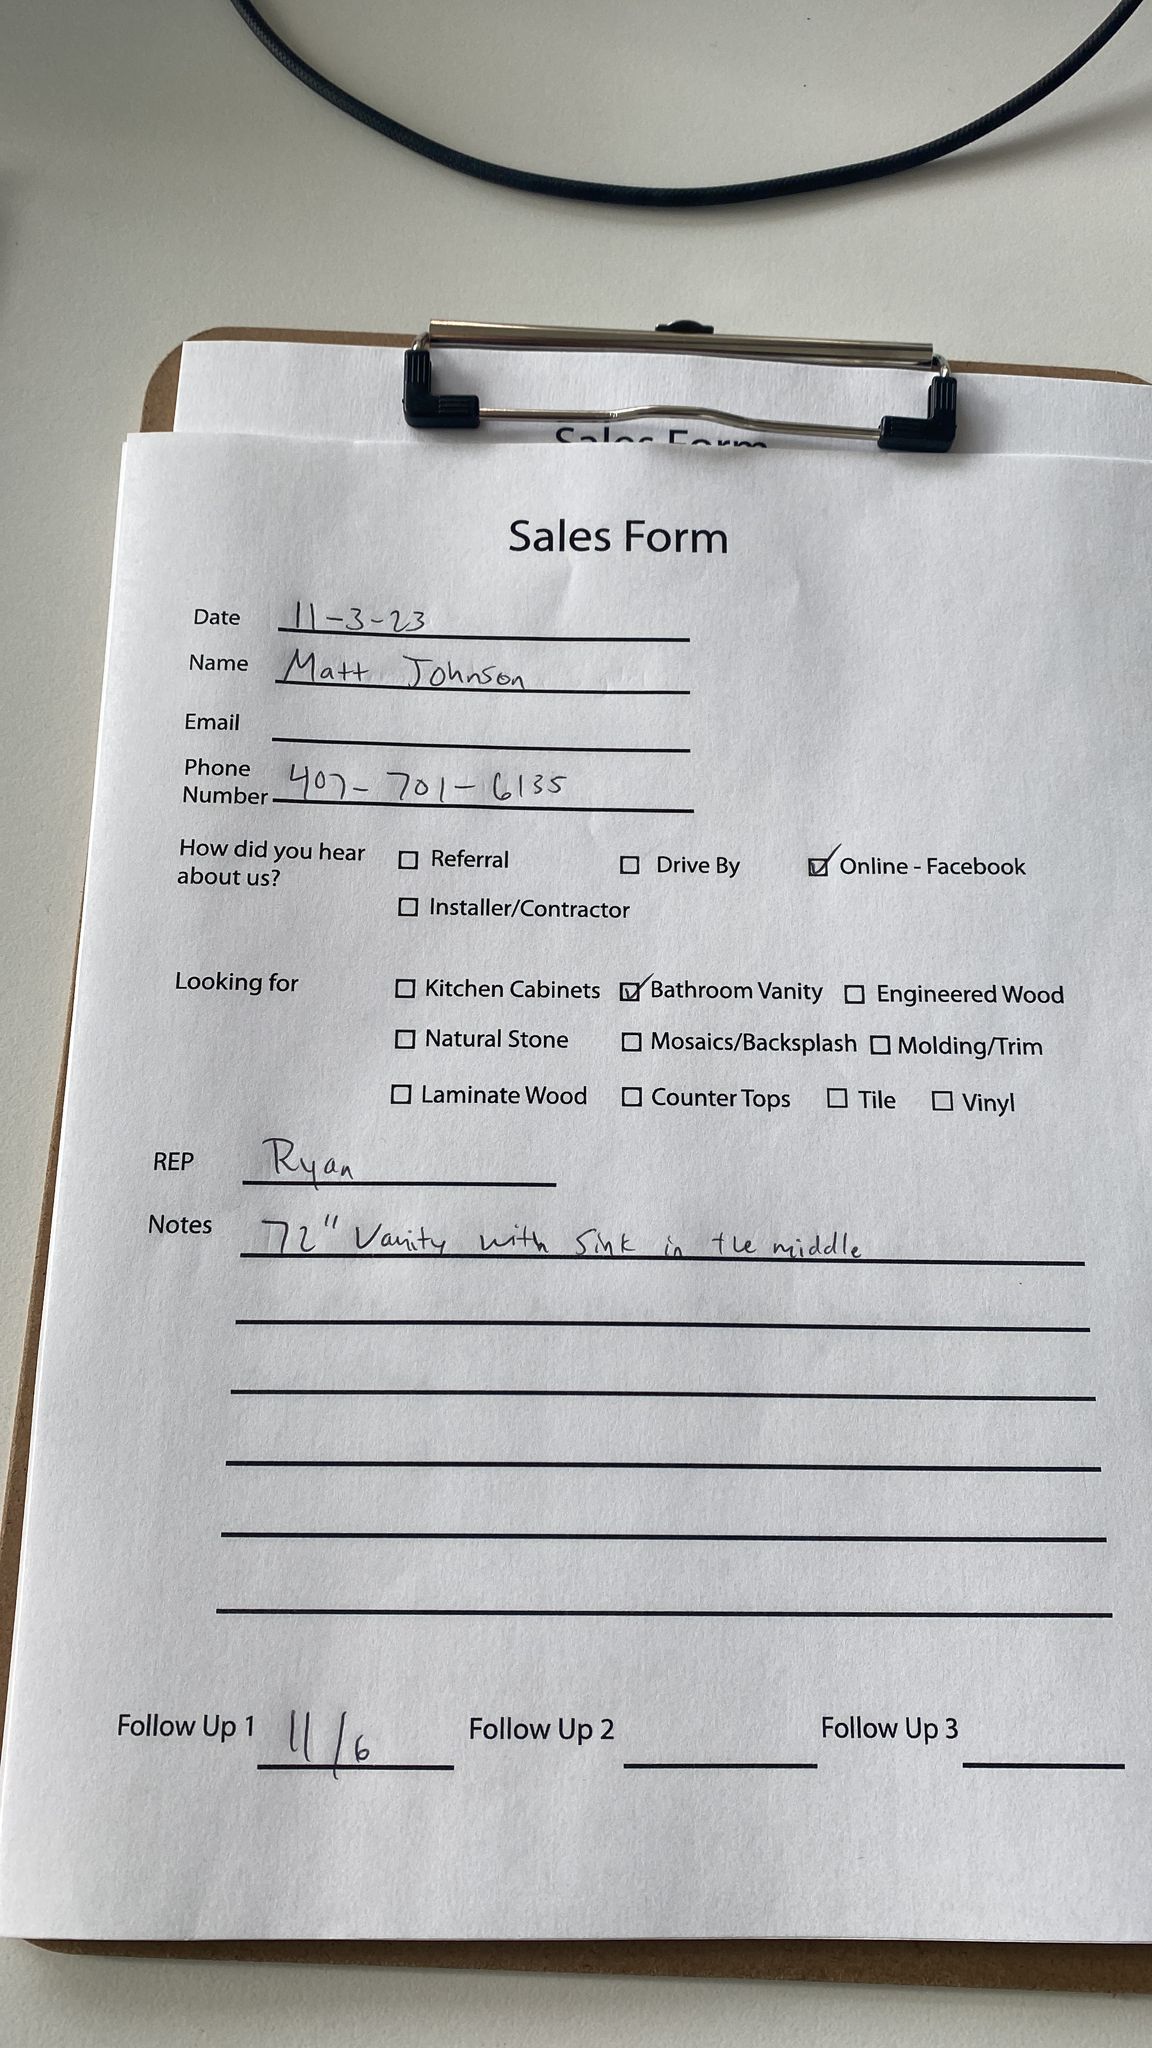 Sales Form
Sales Form
Date 11-3-23
Name Matt Johnson
Email
Phone
Number 407-701-6135
How did you hear
about us?
☐ Referral ☐ Drive By ☑ Online - Facebook
☐ Installer/Contractor
Looking for ☐ Kitchen Cabinets ☑ Bathroom Vanity ☐ Engineered Wood
☐ Natural Stone ☐ Mosaics/Backsplash ☐ Molding/Trim
☐ Laminate Wood ☐ Counter Tops ☐ Tile ☐ Vinyl
REP Ryan
Notes 72" Vanity with sink in the middle
Follow Up 1 11/6 Follow Up 2 Follow Up 3